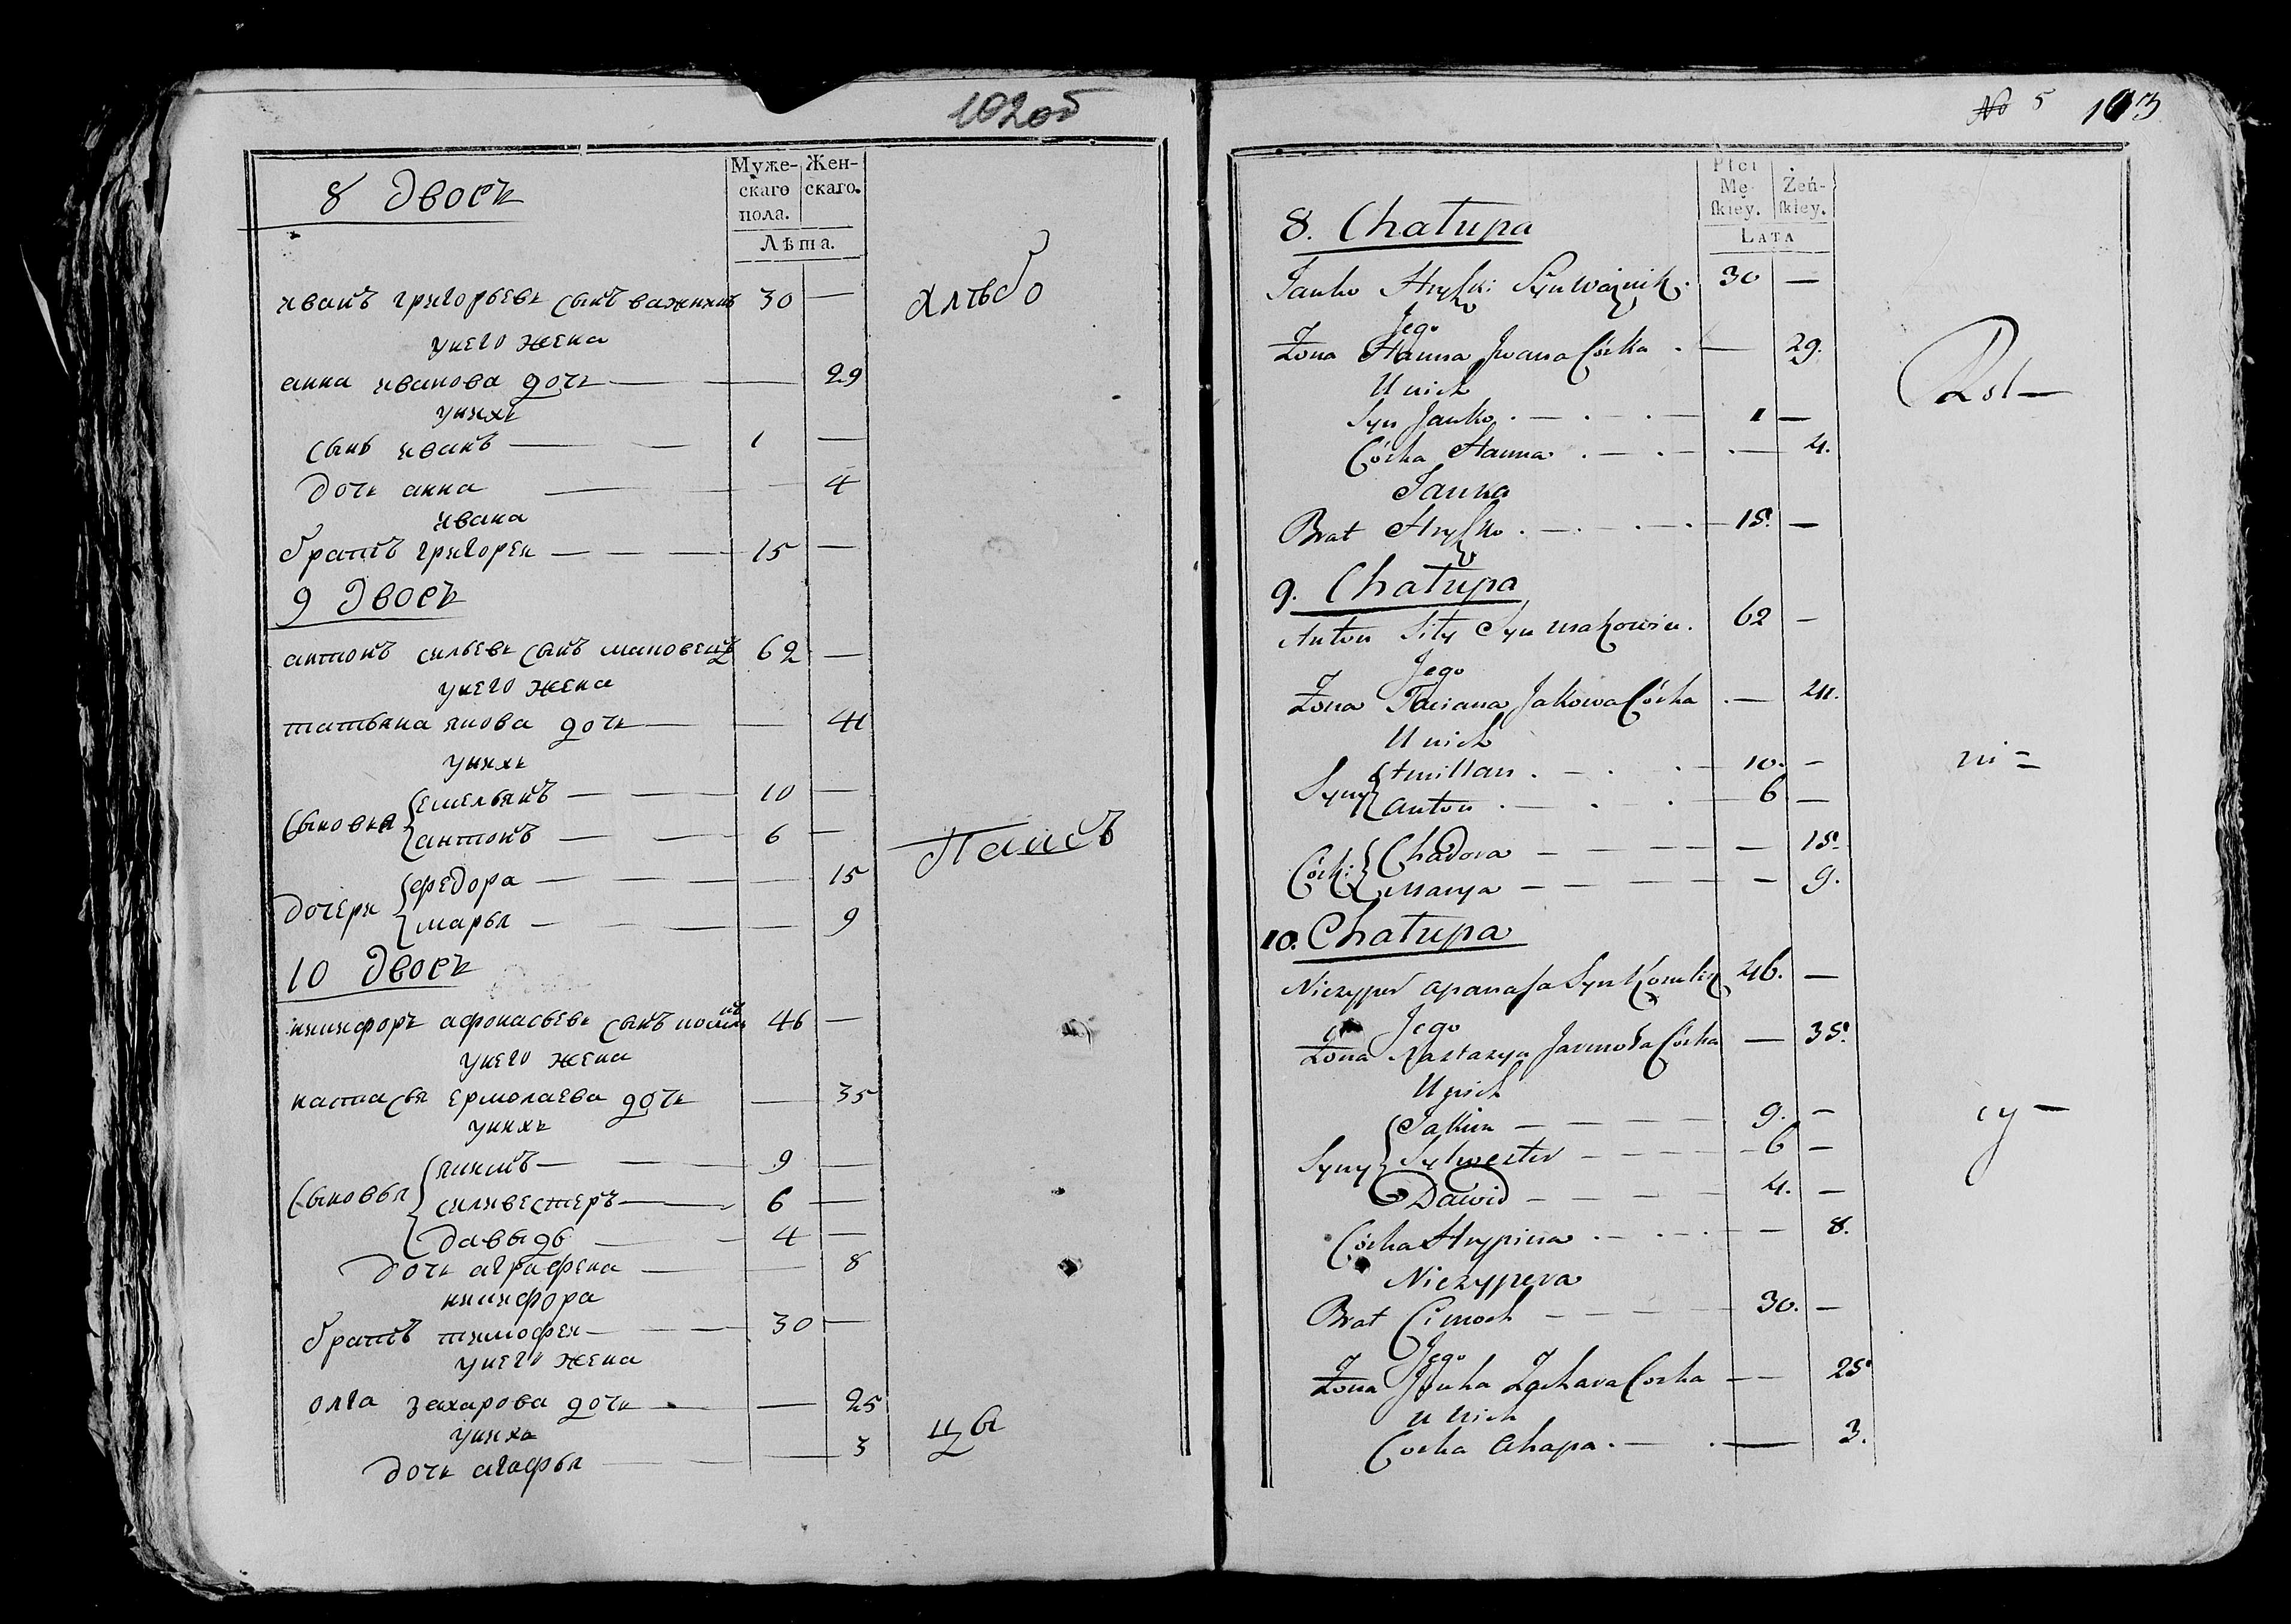 102об
8 Дворъ
Муже-
скаго
пола.
Жен-
скаго.
Лѣта.
Иванъ Григорьевъ сынъ Важникъ 30 —
у него жена
Анна Иванова дочь — — 29
у нихъ
сынъ Иванъ — — 1 —
дочь Анна — — 4
Ивана
братъ Григорей — — — 15 —
хлѣбо
9 Дворъ
Антонъ Сильевъ сынъ Маковецъ 62 —
у него жена
Татьяна Якова дочь — — 41
у нихъ
сыновья Емельянъ — — 10 —
Антонъ — — 6 —
дочери Федора — — — 15
Марья — — — 9
Пашсъ
10 Дворъ
Никифоръ Афонасьевъ сынъ 46 —
у него жена
Настасья Ермолаева дочь — 35
у нихъ
сыновья Якимъ — — — 9 —
Силивестеръ — — 6 —
Давыдъ — — 4 —
дочь Аграфена — — 8
Никифора
братъ Тимофей — — — 30 —
у него жена
Олга Захарова дочь — — 25
у нихъ
дочь Агафья — — — 3
цы
No 5 103
Płci
Mę-
ſkiey.
Żeń-
ſkiey.
LATA
8. Chałupa
Janko Hryſki Syn Ważnik. 30 —
Jego
Żona Hanna Jwana Córka . — 29.
U nich
Syn Janko . — . — . — 1 —
Córka Hanna . — . — . — 4.
Janka
Brat Hryſko . — . — . — 15. —
Rol —
9. Chałupa
Anton Siły Syn Makowiec. 62 —
Jego
Żona Taciana Jakowa Córka . — 41.
U nich
Syny Amillan . — . . — 10. —
Anton . — . . — 6 —
Córki Chadora — — — — — 15.
Marya — — — — — 9.
ni =
10. Chałupa
Niczypor Apanaſa Syn 46. —
Jego
Żona Nastazya Jarmoła Córka — 35.
U nich
Syny Jakim — — — — 9. —
Sylwester — — — — 6 —
Dawid — — — — 4. —
Córka Hrypina . — . — . — 8.
Niczypera
Brat Cimoch — — — — 30. —
Jego
Żona Zachara Corka — — 25
U nich
Corka Ahapa . — . — 3.
cy —